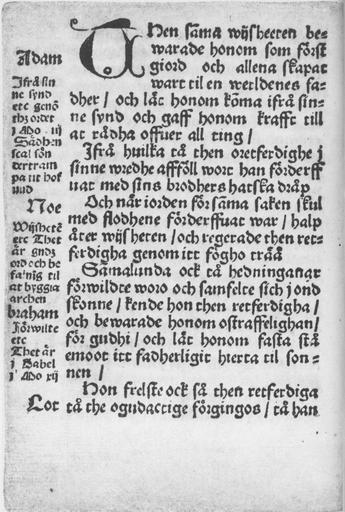 Adam
Ifrå sin
ne synd
etc genõ
thz ordet
i Mo iij
Sädhen
scal sön
dertram
pa tit hof
uud
Noe
Wijshetē
etc Thet
är gudz
ord och be
falnig til
at byggia
archen
braham
Förwilte
etc
Thet är
i Babel
i Mo xij
Lot
Hen sama wijsheeten be-
warade honom som först
giord och allena skapat
wart til en werldenes fa-
dher / och lät honom kõma ifrå sin-
ne synd och gaff honom krafft till
at rådha offuer all ting /
Ifrå huilka tå then oretferdighe j
sinne wredhe affföll wort han förderff
uat med sins brodhers hatska dråp
Och när iorden för sama saken skul
med flodhene förderffuat war / halp
åter wijsheten / och regerade then ret-
ferdigha genom itt fögho trää
Samalunda ock tå hedninganar
förwildte woro och samfelte sich j ond
skonne / kende hon then retferdigha /
och bewarade honom ostraffelighan /
för gudhi / och lät honom fasta stå
emoot itt fadherligit hierta til son-
nen /
Hon frelste ock så then retferdiga
tå the ogudactige förgingos / tå han